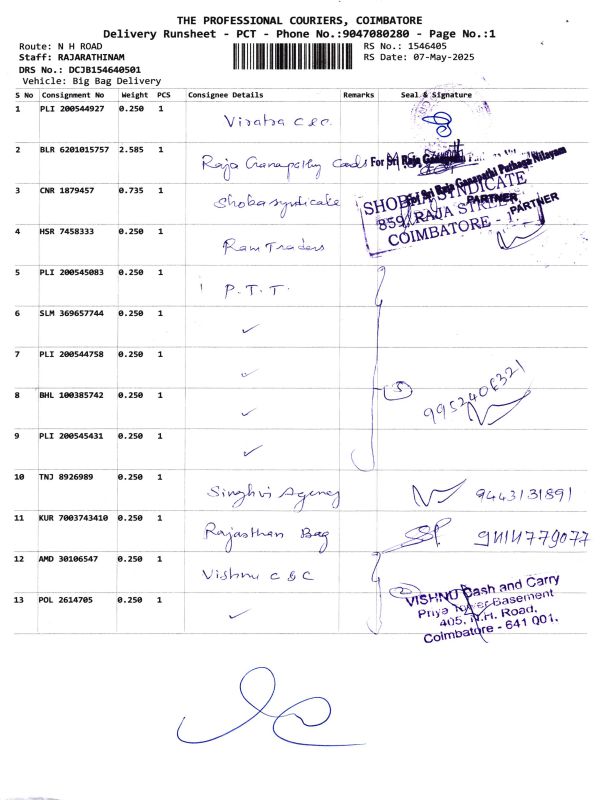 THE PROFESSIONAL COURIERS, COIMBATORE
Delivery Runsheet - PCT - Phone No.:9047080280 - Page No.:1
Route: N H ROAD RS No.: 1546405
Staff: RAJARATHINAM RS Date: 07-May-2025
DRS No.: DCJB154640501
Vehicle: Big Bag Delivery
S No Consignment No Weight PCS Consignee Details Remarks Seal & Signature
1 PLI 200544927 0.250 1
2 BLR 6201015757 2.585 1 Raja Ganapathy For Sri Raja
Sri Raja Ganapathi Nilayam
PARTNER
PARTNER
3 CNR 1879457 0.735 1 Shoba syndicate
SHOBHA SYNDICATE
859, RAJA STREET
COIMBATORE - 1.
4 HSR 7458333 0.250 1 Ram Traders
5 PLI 200545083 0.250 1 P.T.T.
6 SLM 369657744 0.250 1 ✓
7 PLI 200544758 0.250 1 ✓
8 BHL 100385742 0.250 1 ✓ 5 9952406321
9 PLI 200545431 0.250 1 ✓
10 TNJ 8926989 0.250 1 Singhvi Agency 9443131891
11 KUR 7003743410 0.250 1 Rajasthan Bag 9414779077
12 AMD 30106547 0.250 1 Vishnu C & C
13 POL 2614705 0.250 1 ✓ 2
VISHNU Cash and Carry
Priya Tower Basement
405, N.H. Road,
Coimbatore - 641 001.